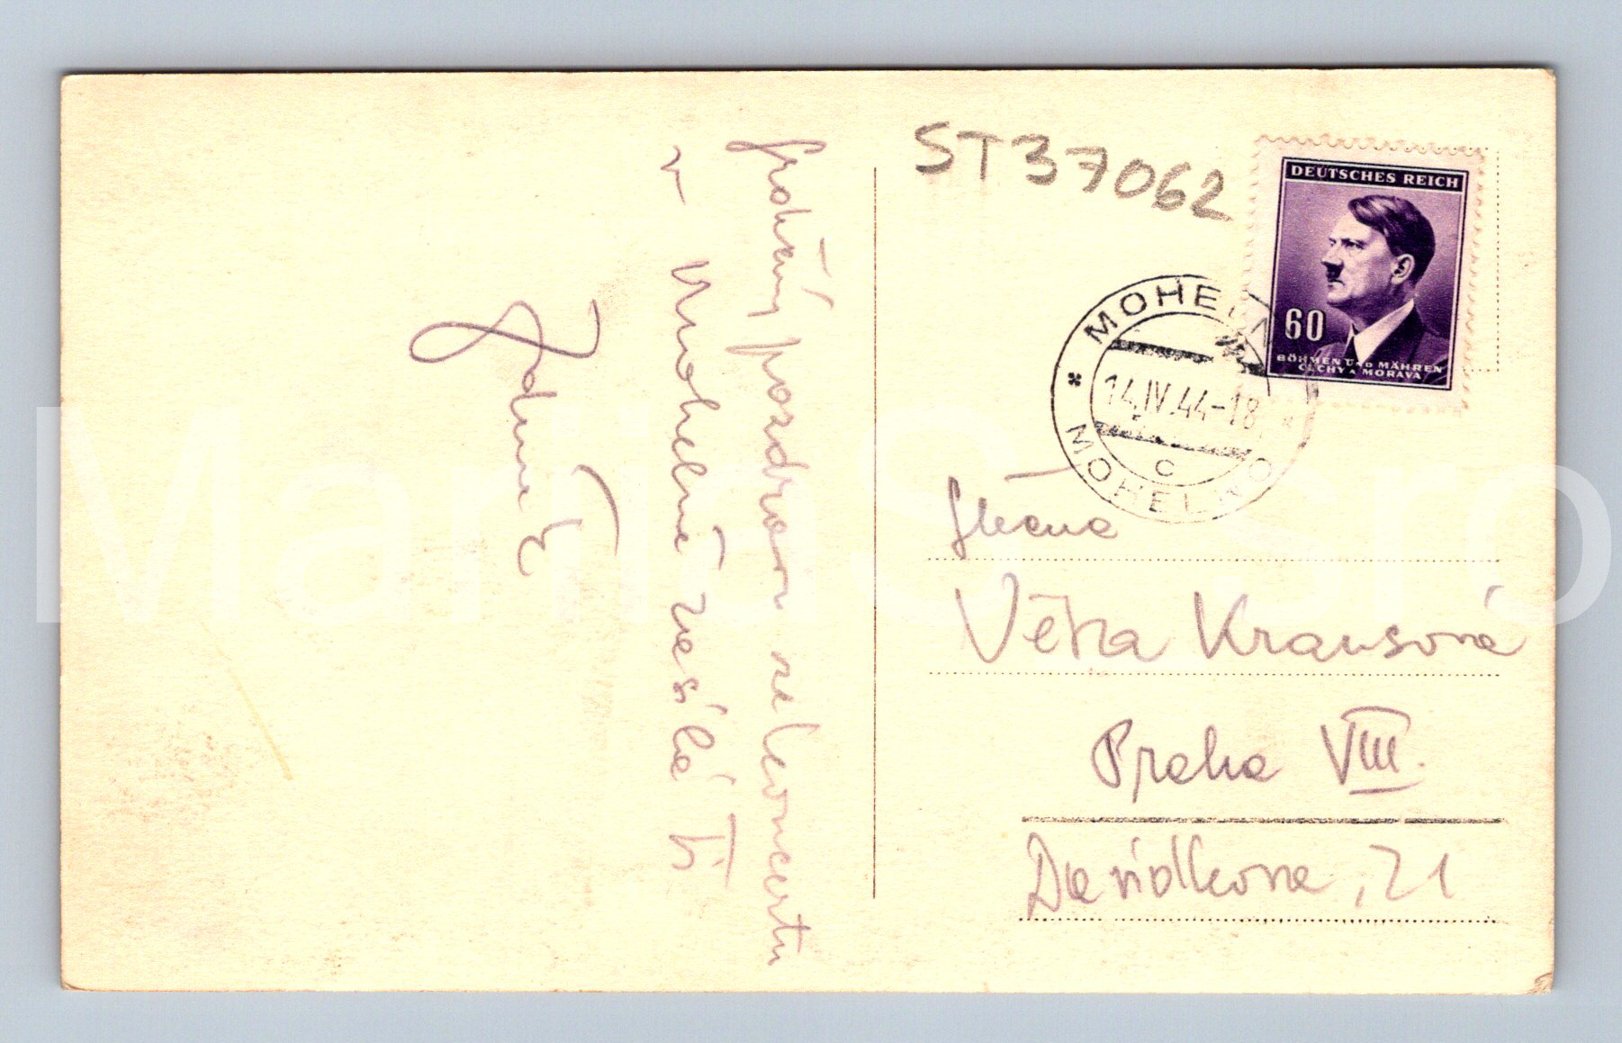 Srdečný pozdrav z koncertu
v Mohelně zasílá Ti
Zdena K
ST37062
DEUTSCHES REICH
60
BÖHMEN UND MÄHREN
ČECHY A MORAVA
MOHELNO
14.IV.44-18
C
MOHELNO
Slečna
Věra Krausová
Praha VIII.
Davídkova, 21